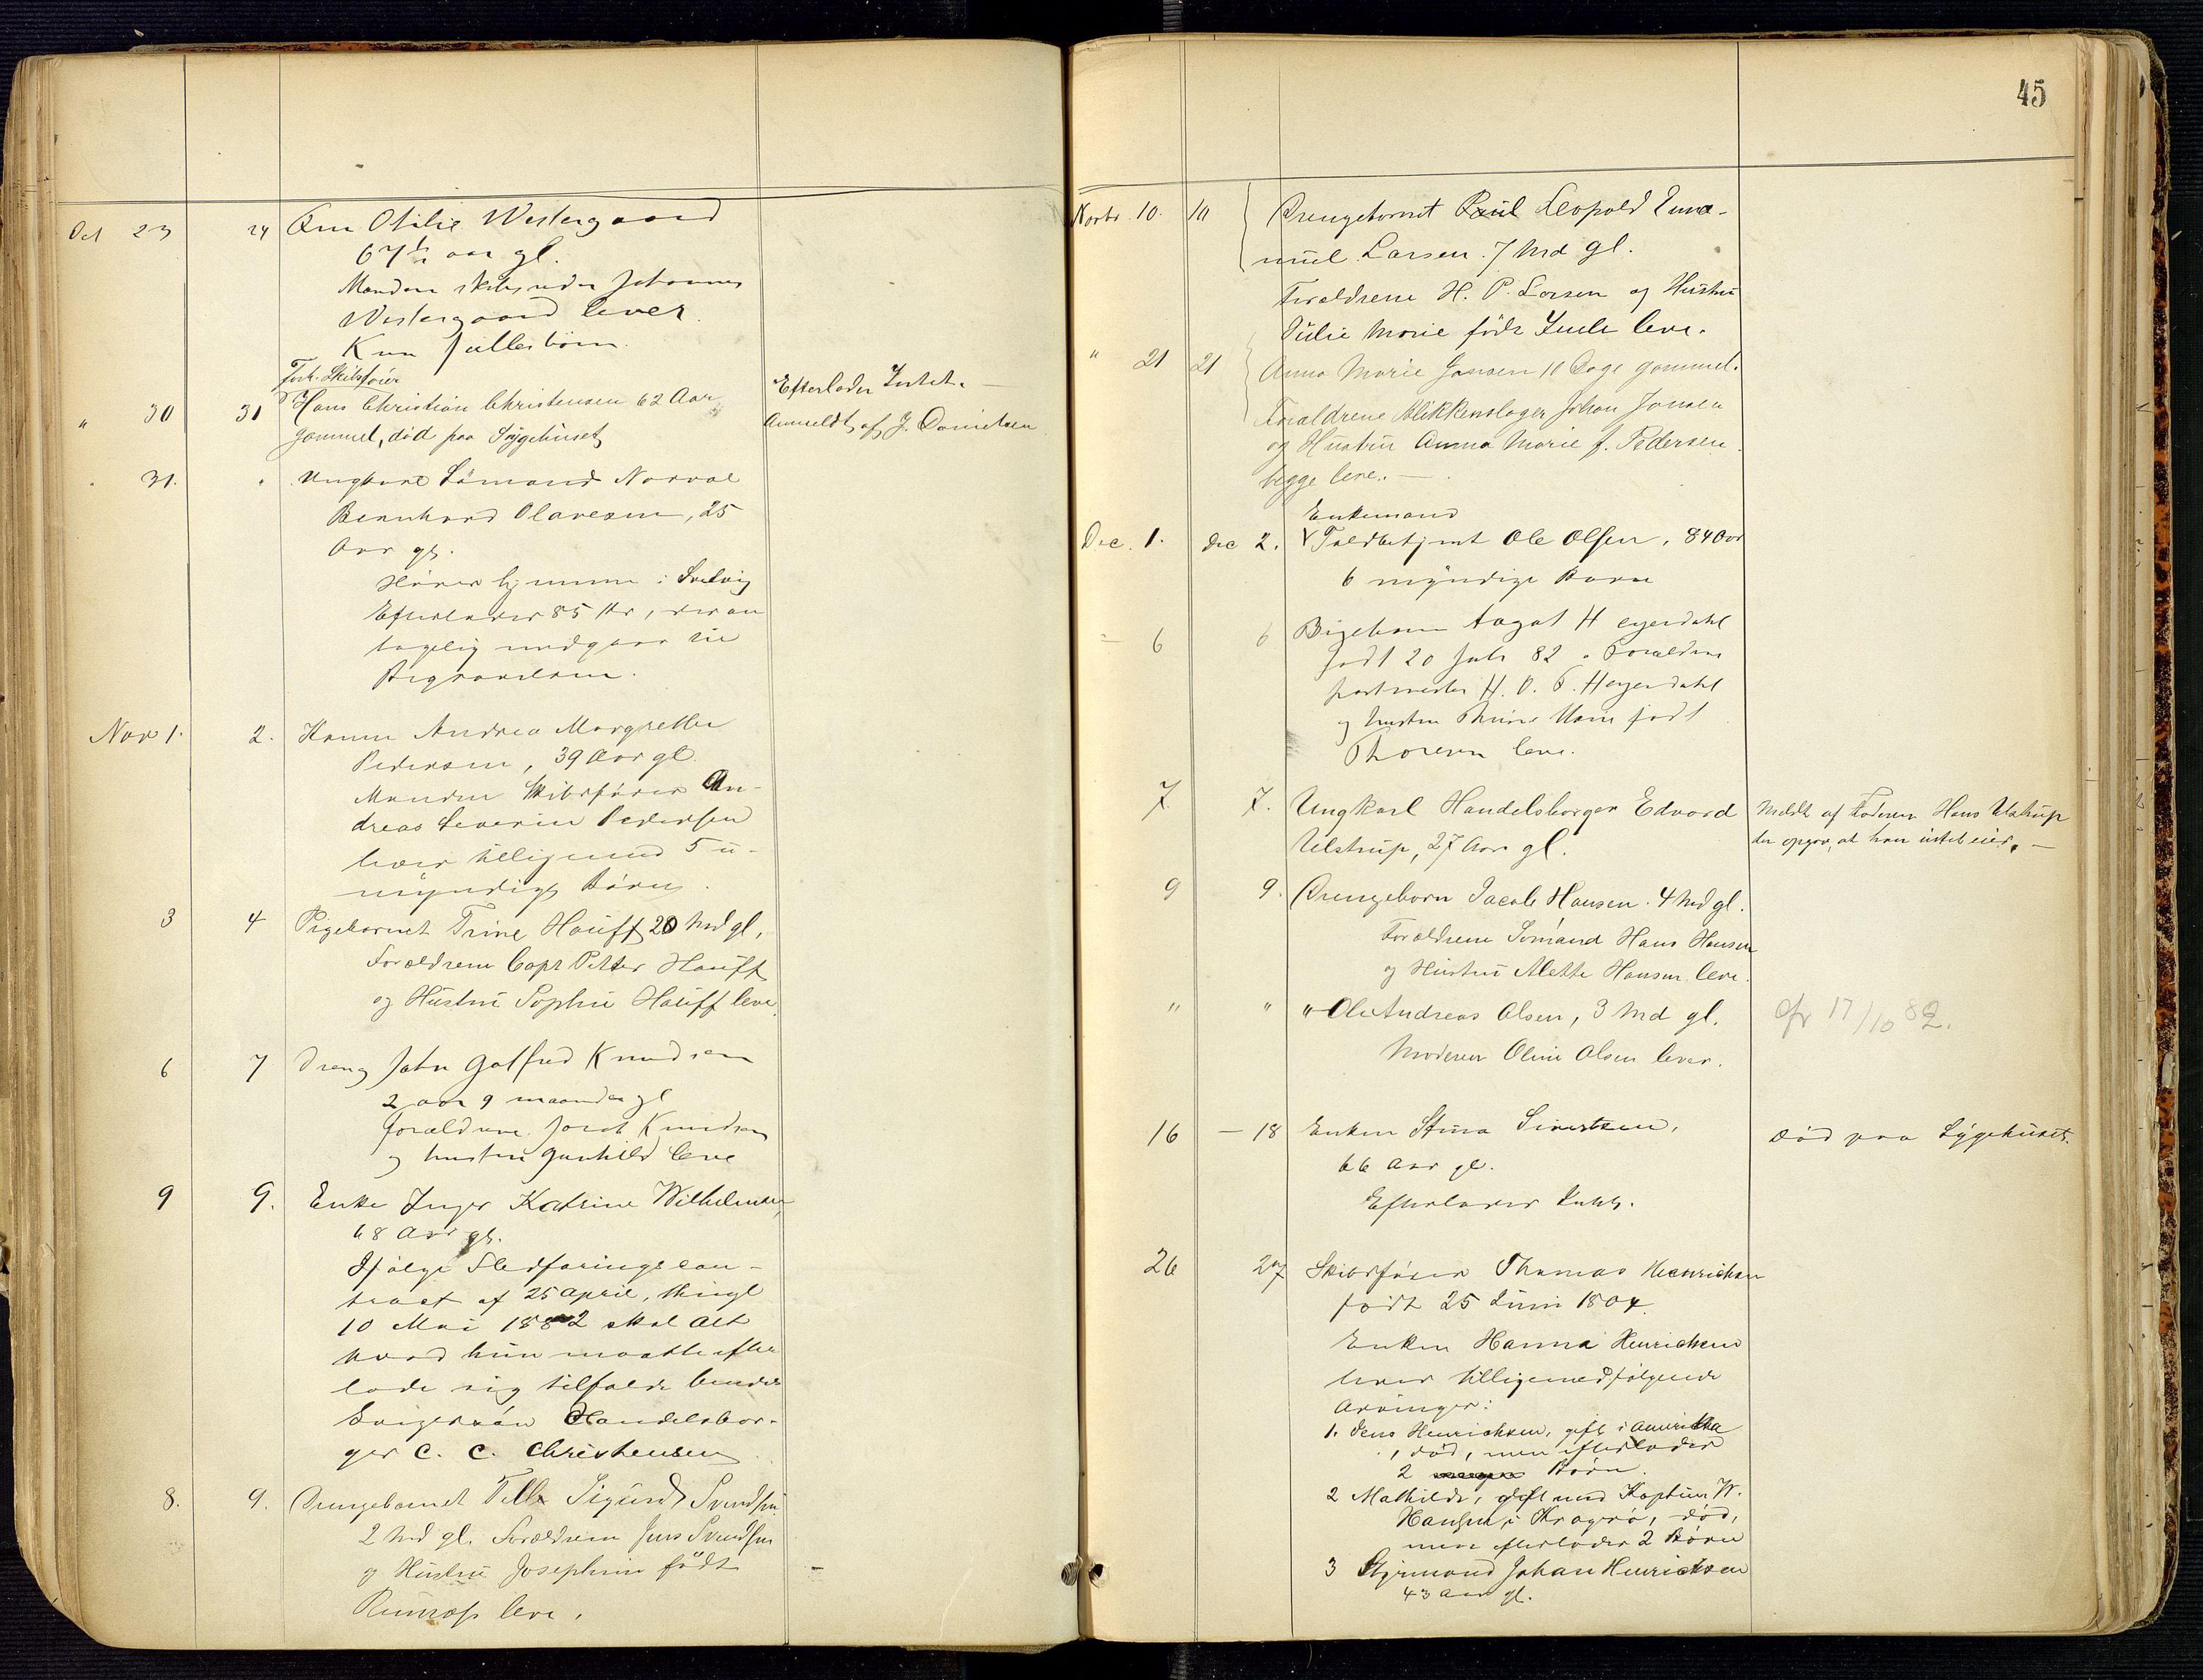 Oct 23 24 Ane Otilie Westergaard
67 1/2 aar gl.
Manden skibsreder Johannes
Westergaard lever.
Kun fuller børn.
Forh. Skibsfører
" 30 31 Hans Christian Christensen 62 Aar Efterlader Intet. —
gammel, død paa Sygehuset Anmeldt af J. Danielsen
" 31. " Ungkarl Sømand Norval
Bernhard Olavesen, 25
Aar gl.
Hører hjemme i Svelvig
Efterlader 85 Kr, der an
tagelig medgaar til
Begravelsen.
Nov 1. 2. Hanne Andrea Margrethe
Pedersen, 39 Aar gl.
Manden Skibsfører An-
dreas Severin Pedersen
lever tilligemed 5 u-
myndige Børn.
3 4 Pigebarnet Trine Hauff 20 Md gl.
Forældrene Capt Petter Hauff
og Hustru Sophie Hauff leve.
6 7 Dreng John Gotfred Knudsen
2 aar 9 maaneder gl
forældrene Jacob Knudsen
og hustru Gunhild leve
9 9. Enke Inger Katrine Wilhelmsen,
68 Aar gl.
Ifølge Fledføringscon-
tract af 25 April, thingl
10 Mai 1882 skal Alt
hvad hun maatte efter
lade sig tilfalde hendes
Svigersøn Handelsbor-
ger C. C. Christensen
8. 9. Drengebarnet Sigurd Svendsen
2 Md gl. Forældrene Jens Svendsen
og Hustru Josephine født
leve.
45
Novbr. 10. 10 Drengebarnet Paul Leopold Ema-
nuel Larsen. 7 Md gl.
Forældrene H. P. Larsen og Hustru
Julie Marie født Juul leve.
" 21 21 Anna Marie Jansen 11 Dage gammel.
Forældrene Blikkenslager Johan Jansen
og Hustru Anna Marie f. Pedersen
begge leve. —
Enkemand
Dec. 1. Dec 2. Toldbetjent Ole Olsen, 84 Aar
6 myndige Børn
" 6 6 Pigebarn Aagot Heyerdahl
født 20 Juli 82. Forældrene
postmester H. O. P. Heyerdahl
og hustru Marie født
Thoresen leve.
7 7. Ungkarl Handelsborger Edvard Meldt af Faderen Hans Ulstrup
Ulstrup, 27 Aar gl. der opgav, at han intet eied. —
9 9. Drengebarn Jacob Hansen. 4 Md gl.
Forældrene Sømand Hans Hansen
og Hustru Alette Hansen leve.
" " " Ole Andreas Olsen, 3 Md gl. cfr 17/10 82.
Moderen Oline Olsen lever.
16 — 18 Enken Stina Sivertsen, Død paa Sygehuset.
66 Aar gl.
Efterlader Intet.
26 27 Skibsfører Thomas Henrichsen
født 25 Juni 1804.
Enken Hanna Henrichsen
lever tilligemed følgende
Arvinger:
1. Jens Henrichsen, gift i Amerika
, død, men efterlader
2 Børn.
2 Mathilde, gift med Kaptein W.
Hansen i Kragerø, død,
men efterlader 2 Børn
3 Styrmand Johan Henrichsen
43 Aar gl.